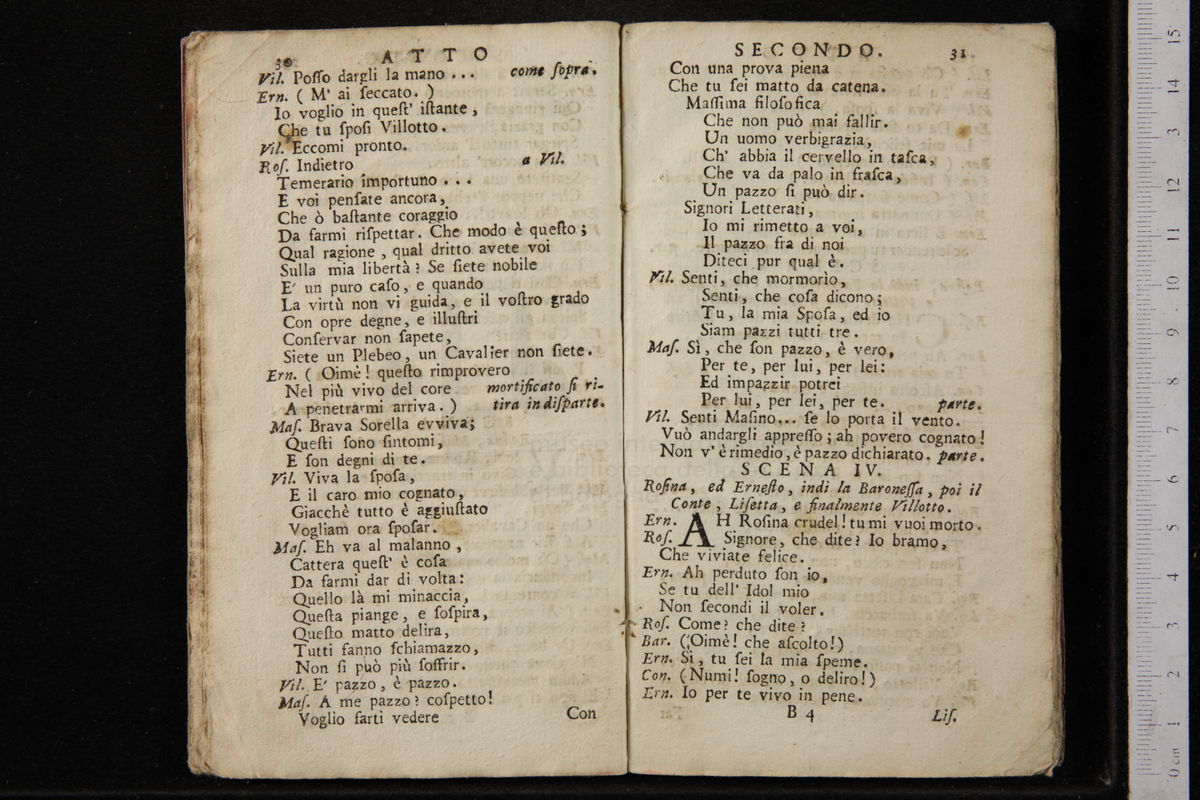 30 ATTO
Vil. Poſſo dargli la mano ... come ſopra.
Ern. ( M' ai ſeccato. )
Io voglio in queſt' iſtante,
Che tu ſpoſi Villotto.
Vil. Eccomi pronto.
Roſ. Indietro a Vil.
Temerario importuno ...
E voi penſate ancora,
Che ò baſtante coraggio
Da farmi riſpettar. Che modo è queſto;
Qual ragione, qual dritto avete voi
Sulla mia libertà? Se ſiete nobile
E' un puro caſo, e quando
La virtù non vi guida, e il voſtro grado
Con opre degne, e illuſtri
Conſervar non ſapete,
Siete un Plebeo, un Cavalier non ſiete.
Ern. ( Oimè! queſto rimprovero
Nel più vivo del core mortificato ſi ri-
A penetrarmi arriva. ) tira indiſparte.
Maſ. Brava Sorella evviva;
Queſti ſono ſintomi,
E ſon degni di te.
Vil. Viva la ſpoſa,
E il caro mio cognato,
Giacchè tutto è aggiuſtato
Vogliam ora ſpoſar.
Maſ. Eh va al malanno,
Cattera queſt' è coſa
Da farmi dar di volta:
Quello là mi minaccia,
Queſta piange, e ſoſpira,
Queſto matto delira,
Tutti fanno ſchiamazzo,
Non ſi può più ſoffrir.
Vil. E' pazzo, è pazzo.
Maſ. A me pazzo? coſpetto!
Voglio farti vedere
Con
SECONDO. 31
Con una prova piena
Che tu ſei matto da catena.
Maſſima filoſofica
Che non può mai fallir.
Un uomo verbigrazia,
Ch' abbia il cervello in taſca,
Che va da palo in fraſca,
Un pazzo ſi può dir.
Signori Letterati,
Io mi rimetto a voi,
Il pazzo fra di noi
Diteci pur qual è.
Vil. Senti, che mormorìo,
Senti, che coſa dicono;
Tu, la mia Spoſa, ed io
Siam pazzi tutti tre.
Maſ. Sì, che ſon pazzo, è vero,
Per te, per lui, per lei:
Ed impazzir potrei
Per lui, per lei, per te. parte.
Vil. Senti Maſino... ſe lo porta il vento.
Vuò andargli appreſſo; ah povero cognato!
Non v' è rimedio, è pazzo dichiarato. parte.
SCENA IV.
Roſina, ed Erneſto, indi la Baroneſſa, poi il
Conte, Liſetta, e finalmente Villotto.
Ern. AH Roſina crudel! tu mi vuoi morto.
Roſ. Signore, che dite? Io bramo,
Che viviate felice.
Ern. Ah perduto ſon io,
Se tu dell' Idol mio
Non ſecondi il voler.
Roſ. Come? che dite?
Bar. (Oimè! che aſcolto!)
Ern. Sì, tu ſei la mia ſpeme.
Con. (Numi! ſogno, o deliro!)
Ern. Io per te vivo in pene.
B 4 Liſ.
0 cm 1 2 3 4 5 6 7 8 9 10 11 12 13 14 15